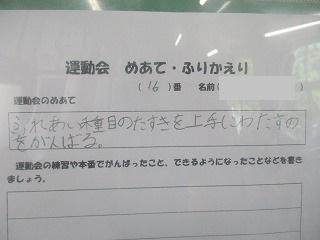 運動会 めあて・ふりかえり
（ 16 ）番 名前（
運動会のめあて
ふれあい種目のたすきを上手にわたすの
をがんばる。
運動会の練習や本番でがんばったこと、できるようになったことなどを書き
ましょう。